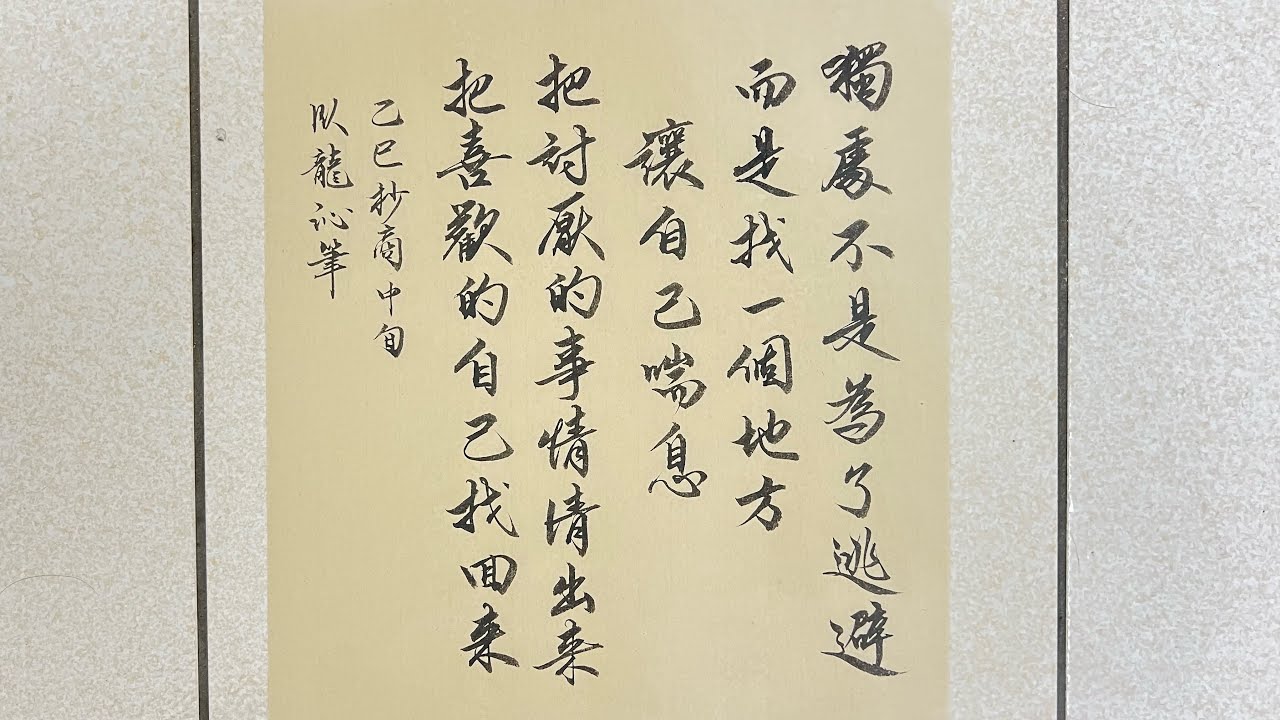 獨處不是為了逃避
而是找一個地方
讓自己喘息
把討厭的事情清出来
把喜歡的自己找回来
乙巳抄商中旬
臥龍沁筆